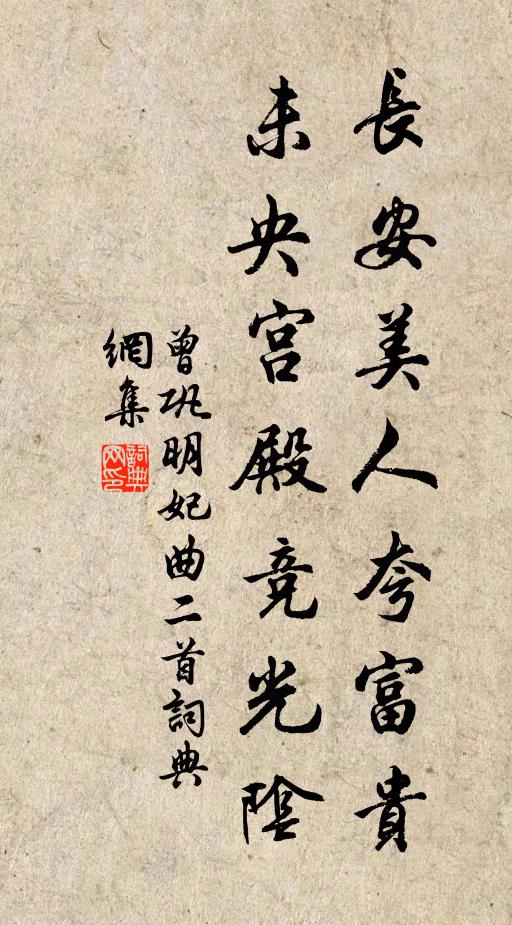 長安美人夸富貴
未央宮殿竞光陰
曾巩明妃曲二首詞典
網集
詞典
网印